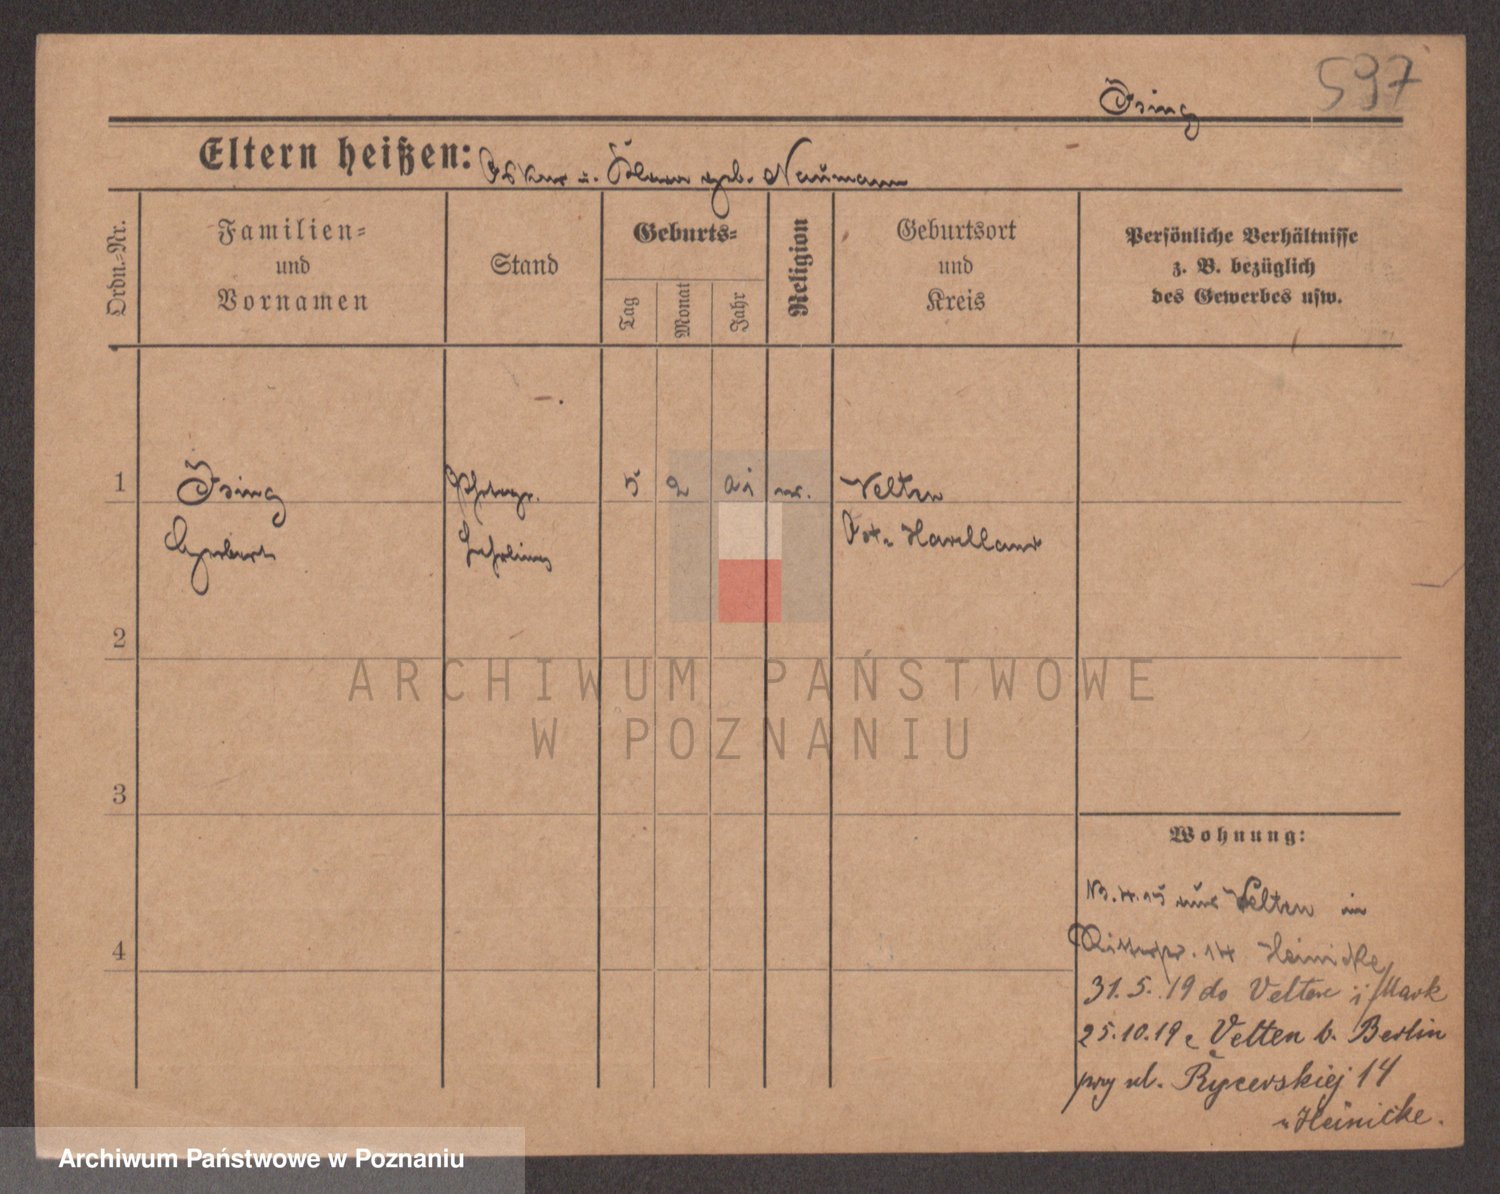 597
Ising
Eltern heißen: Oskar u. geb. Naumann
Ordn.-Nr.
Familien-
und
Vornamen
Stand
Geburts-
Tag
Monat
Jahr
Religion
Geburtsort
und
Kreis
Persönliche Verhältnisse
z. B. bezüglich
des Gewerbes usw.
1
Ising
Photogr.
5
2
Velten
Lehrling
Ost-Havelland
2
ARCHIWUM PAŃSTWOWE
W POZNANIU
3
Wohnung:
aus Velten in
4
Ritterstr. 14 Heinicke
31.5.19 do Velten i/Mark
25.10.19 z Velten b. Berlin
przy ul. Rycerskiej 14
u Heinicke.
Archiwum Państwowe w Poznaniu